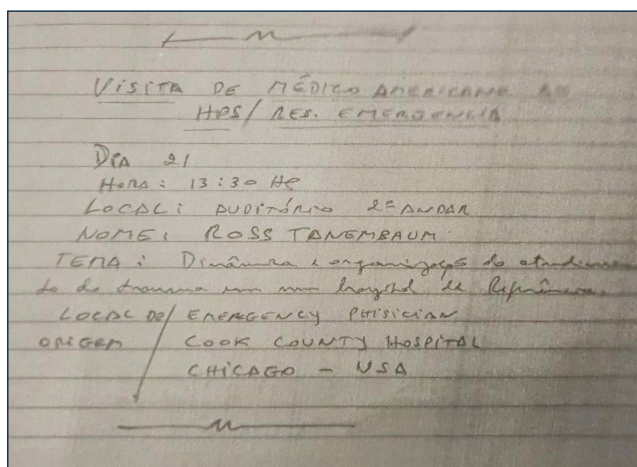 VISITA DE MÉDICO AMERICANO AO
HPS/RES. EMERGENCIA
DIA 21
HORA: 13:30 HS
LOCAL: AUDITÓRIO 2º ANDAR
NOME: ROSS TANEMBAUM
TEMA: Dinâmica e organização do atendimen
to do trauma em um hospital de Referência.
LOCAL DE/ EMERGENCY PHISICIAN
ORIGEM / COOK COUNTY HOSPITAL
CHICAGO - USA